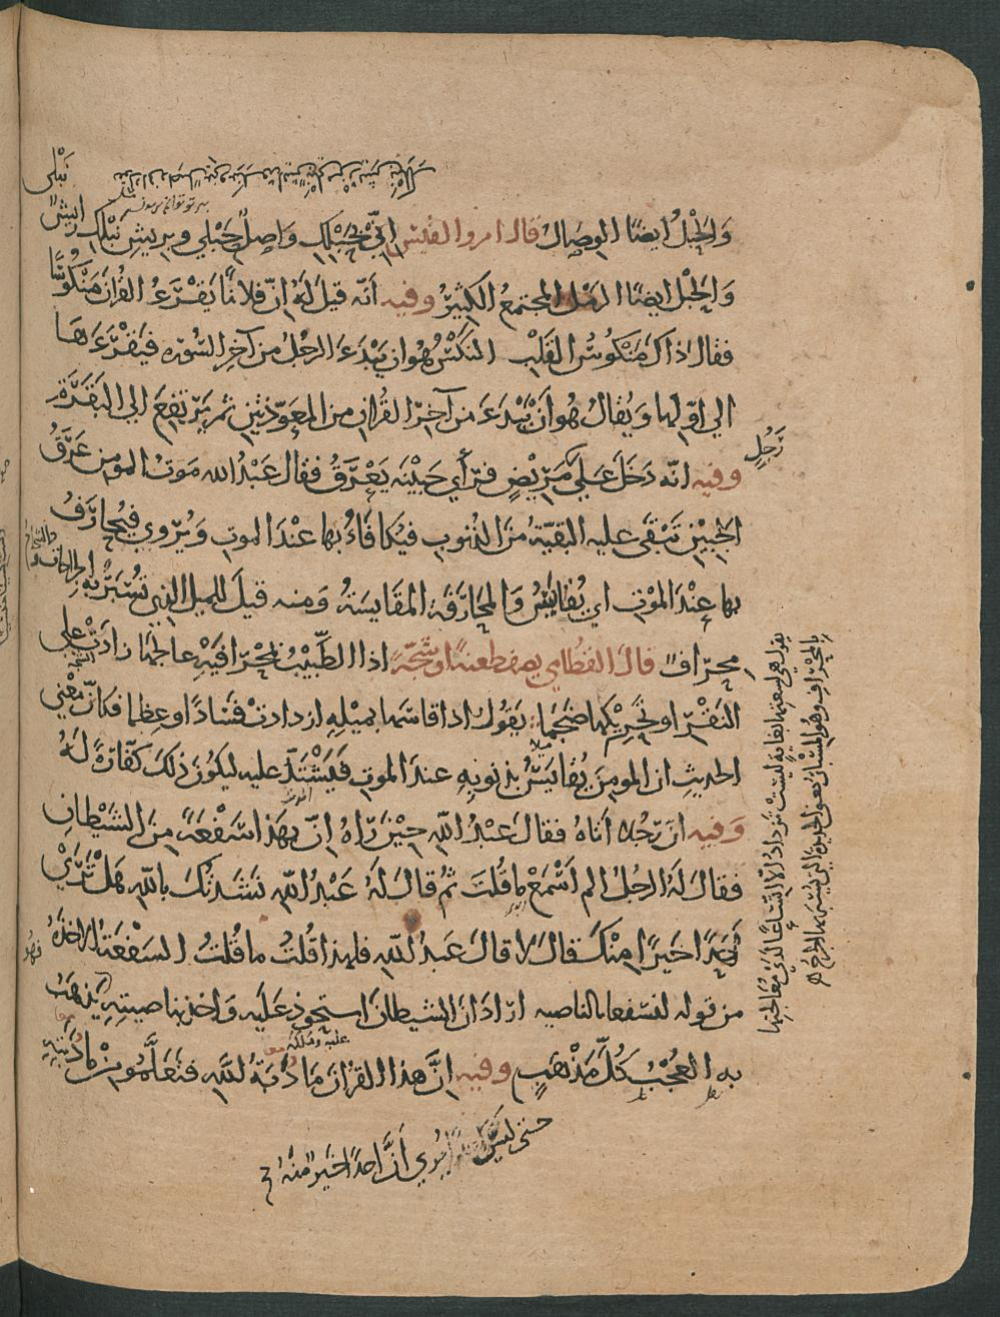 والحبل ايضا الوصال قال امرو القيس اني بحبلك واصل حبلي وبريش نبلك رايش نبلي
والحبل ايضا الرمل المجتمع الكثير وفيه انه قيل له ان فلانا يقرء القران منكوسا
فقال ذاك منكوس القلب المنكس هو ان يبدء الرجل من آخر السوره فيقرءها
الي اولها ويقال هو ان يبدء من آخر القران من المعوذتين ثم يرتفع الي البقرة
وفيه انه دخل علي مريض فرأي جبينه يعرق فقال عبد الله موت المومن عرق
الجبين تبقي عليه البقية من الذنوب فيكافاء بها عند الموت ويروي فيحارف
بها عند الموت اي يقايس والمحارفة المقايسة ومنه قيل للميل الذي تسبر به الجراحات
محراف قال القطامي يصف طعنة او شجة اذا الطبيب بمحرافيه عالجها زادت علي
النفر او تحريكها ضجما يقول اذا قاسها بميله ازدادت فسادا او عظما فكان معني
الحديث ان المومن يقايس بذنوبه عند الموت فيشتد عليه ليكون ذلك كفارة له
وفيه ان رجلا اتاه فقال عبد الله حين رأه ان بهذا سفعة من الشيطان
فقال له الرجل الم اسمع ما قلت ثم قال له عبد الله نشدتك بالله هل تري
احدا خيرا منك قال لا قال عبد الله فلهذا قلت ما قلت السفعة الاخذه
من قوله لنسفعا بالناصيه اراد ان الشيطان استحوذ عليه واخذ بناصيته يذهب
به العجب كل مذهب وفيه ان هذا القران مادبة الله فتعلموا من مادبته
رجل
حتي ليس يري ان احدا خير منه